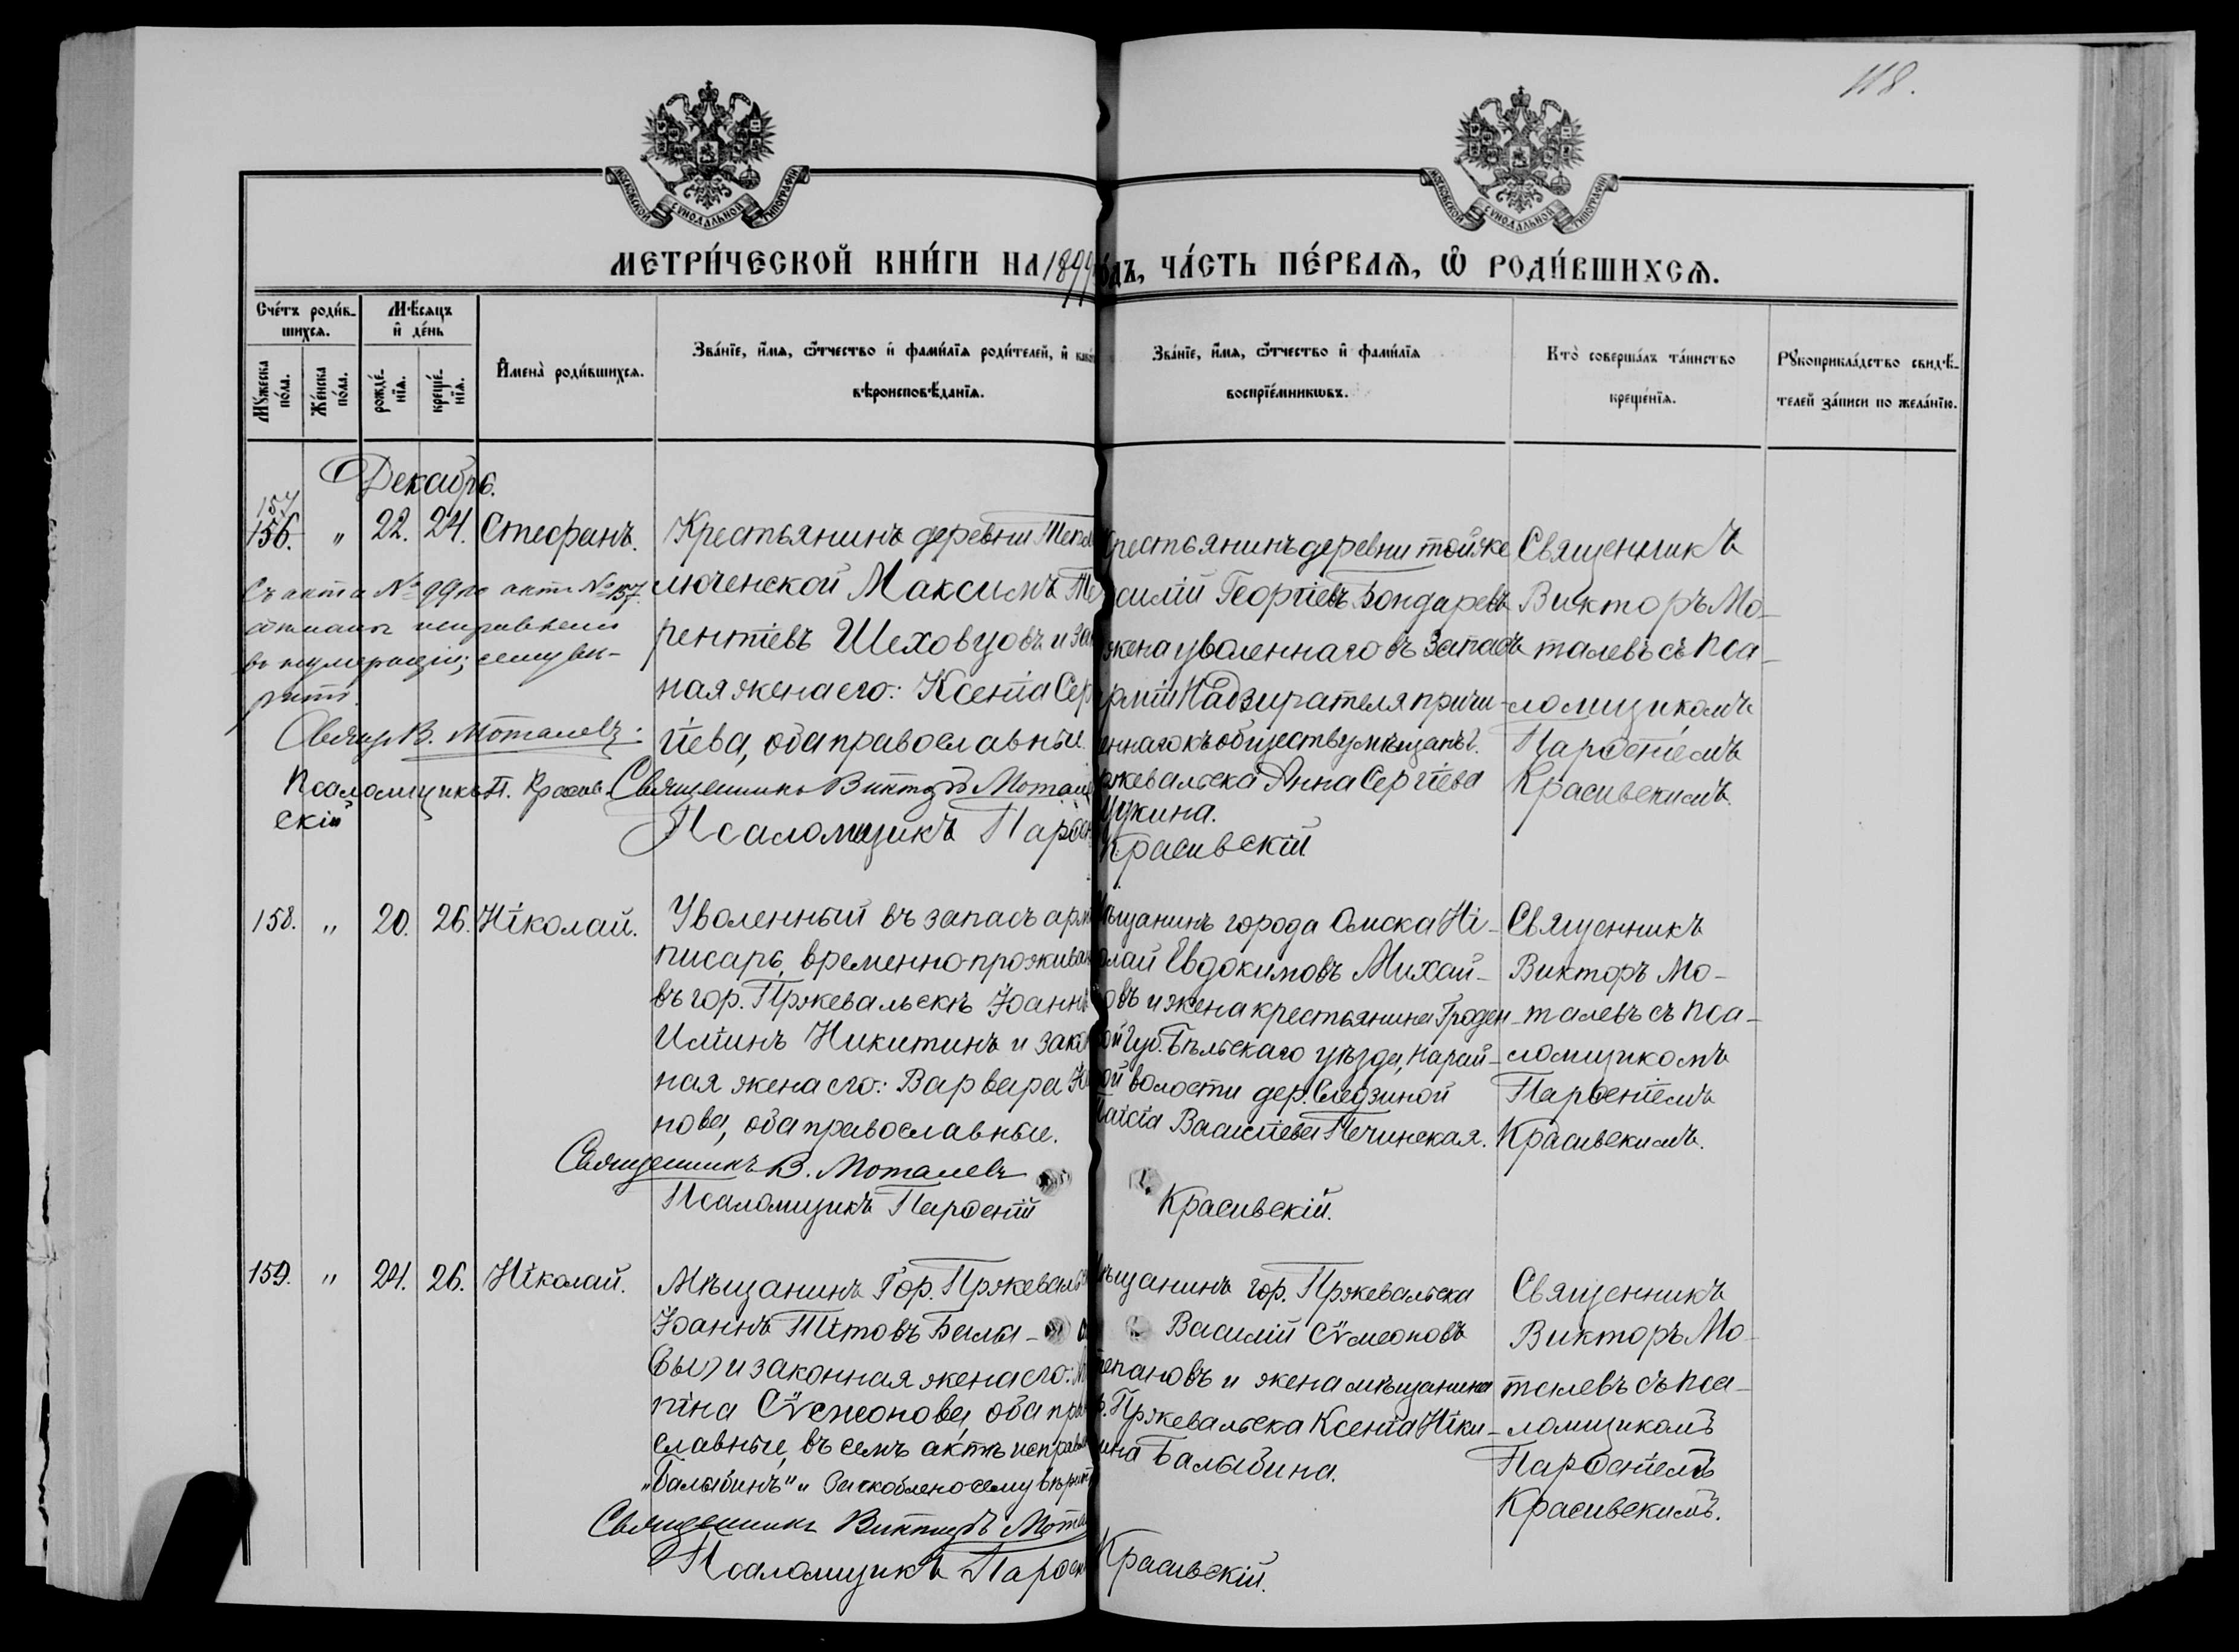 118.
МОСКОВСКОЙ СѴНОДАЛЬНОЙ ТИПОГРАФІИ
МОСКОВСКОЙ СѴНОДАЛЬНОЙ ТИПОГРАФІИ
МЕТРИ́ЧЕСКОЙ КНИ́ГИ НА 1899 ГОДЪ, ЧА́СТЬ ПЕ́РВАѦ, Ѡ҆ РОДИ́ВШИХСѦ.
Сче́тъ роди́в-
шихсѧ.
Мꙋ́жеска по́ла.
Же́нска по́ла.
Мѣ́сѧцъ
и҆ де́нь
рожде́-
нїѧ.
креще́-
нїѧ.
И҆мена̀ роди́вшихсѧ.
Зва́нїе, и҆́мѧ, ѻ҆́тчество и҆ фами́лїѧ роди́телей, и҆
вѣроисповѣ́данїѧ.
Зва́нїе, и҆́мѧ, ѻ҆́тчество и҆ фами́лїѧ
воспрїе́мникѡвъ.
Кто̀ соверша́лъ та́инство
креще́нїѧ.
Рꙋкоприкла́дство свидѣ́-
телей за́писи по жела́нїю.
Декабрь.
157
156. " 22. 24. Стефанъ.
Крестьянинъ деревни Тепло
люченской Максимъ Те
рентіевъ Шеховцовъ и зак
ная жена его: Ксенія Сер
гіева, оба православные.
Священникъ Викторъ Мотал
Псаломщикъ Парѳен
Съ акта № 99 по актъ № 157.
исправлена
въ нумераціи; сему вѣ-
рить.
Священ. В. Моталевъ.
Псаломщикъ П. Красив-
скій
Крестьянинъ деревни той же
силій Георгіевъ Бондаревъ
жена уволеннаго въ запасъ
арміи Надзирателя причи-
еннаго къ обществу мѣщанъ г.
жевальска Анна Сергіева
кина.
Красивскій
Священникъ
Викторъ Мо-
талевъ съ пса-
ломщикомъ
Парѳеніемъ
Красивскимъ.
158. " 20. 26. Ніколай.
Уволенный въ запасъ арм
писарь, временно-прожива
въ гор. Пржевальскѣ Іоаннъ
Иліинъ Никитинъ и зако
ная жена его: Варвара
нова, оба православные.
Священникъ В. Моталевъ
Псаломщикъ Парѳеній
Мѣщанинъ города Омска Ні-
олай Евдокимовъ Михай-
овъ и жена крестьянина Гроден-
ой губ. Бѣльскаго уѣзда, Нарай-
ой волости дер.Следзиной
Таисія Василіева Печинская.
Красивскій.
Священникъ
Викторъ Мо-
талевъ съ пса-
ломщикомъ
Парѳеніемъ
Красивскимъ.
159. " 24. 26. Ніколай.
Мѣщанинъ Гор. Пржеваль
Іоаннъ Тітовъ Балы-
(вы) и законная жена его:
піна Сѵмеонова, оба пра
славные, въ семъ актѣ исправ
„Балыбинъ" „ Заскоблено сему вѣрить
Священникъ Викторъ Мота
Псаломщикъ Парѳен
Мѣщанинъ гор. Пржевальска
Василій Сѵмеоновъ
епановъ и жена мѣщанина
р. Пржевальска Ксенія Ніки-
ина Балыбина.
Красивскій.
Священникъ
Викторъ Мо-
талевъ съ пса-
ломщикомъ
Парѳеніемъ
Красивскимъ.